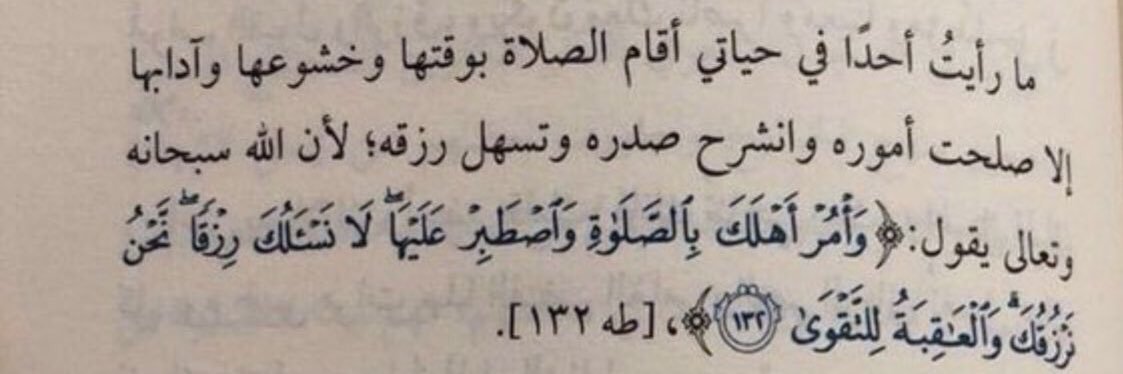 ما رأيتُ أحدًا في حياتي أقام الصلاة بوقتها وخشوعها وآدابها
إلا صلحت أموره وانشرح صدره وتسهل رزقه؛ لأن الله سبحانه
وتعالى يقول: ﴿وَأۡمُرۡ أَهۡلَكَ بِٱلصَّلَوٰةِ وَٱصۡطَبِرۡ عَلَيۡهَاۖ لَا نَسۡـَٔلُكَ رِزۡقٗاۖ نَّحۡنُ
نَرۡزُقُكَۗ وَٱلۡعَٰقِبَةُ لِلتَّقۡوَىٰ ١٣٢﴾، [طه ١٣٢].